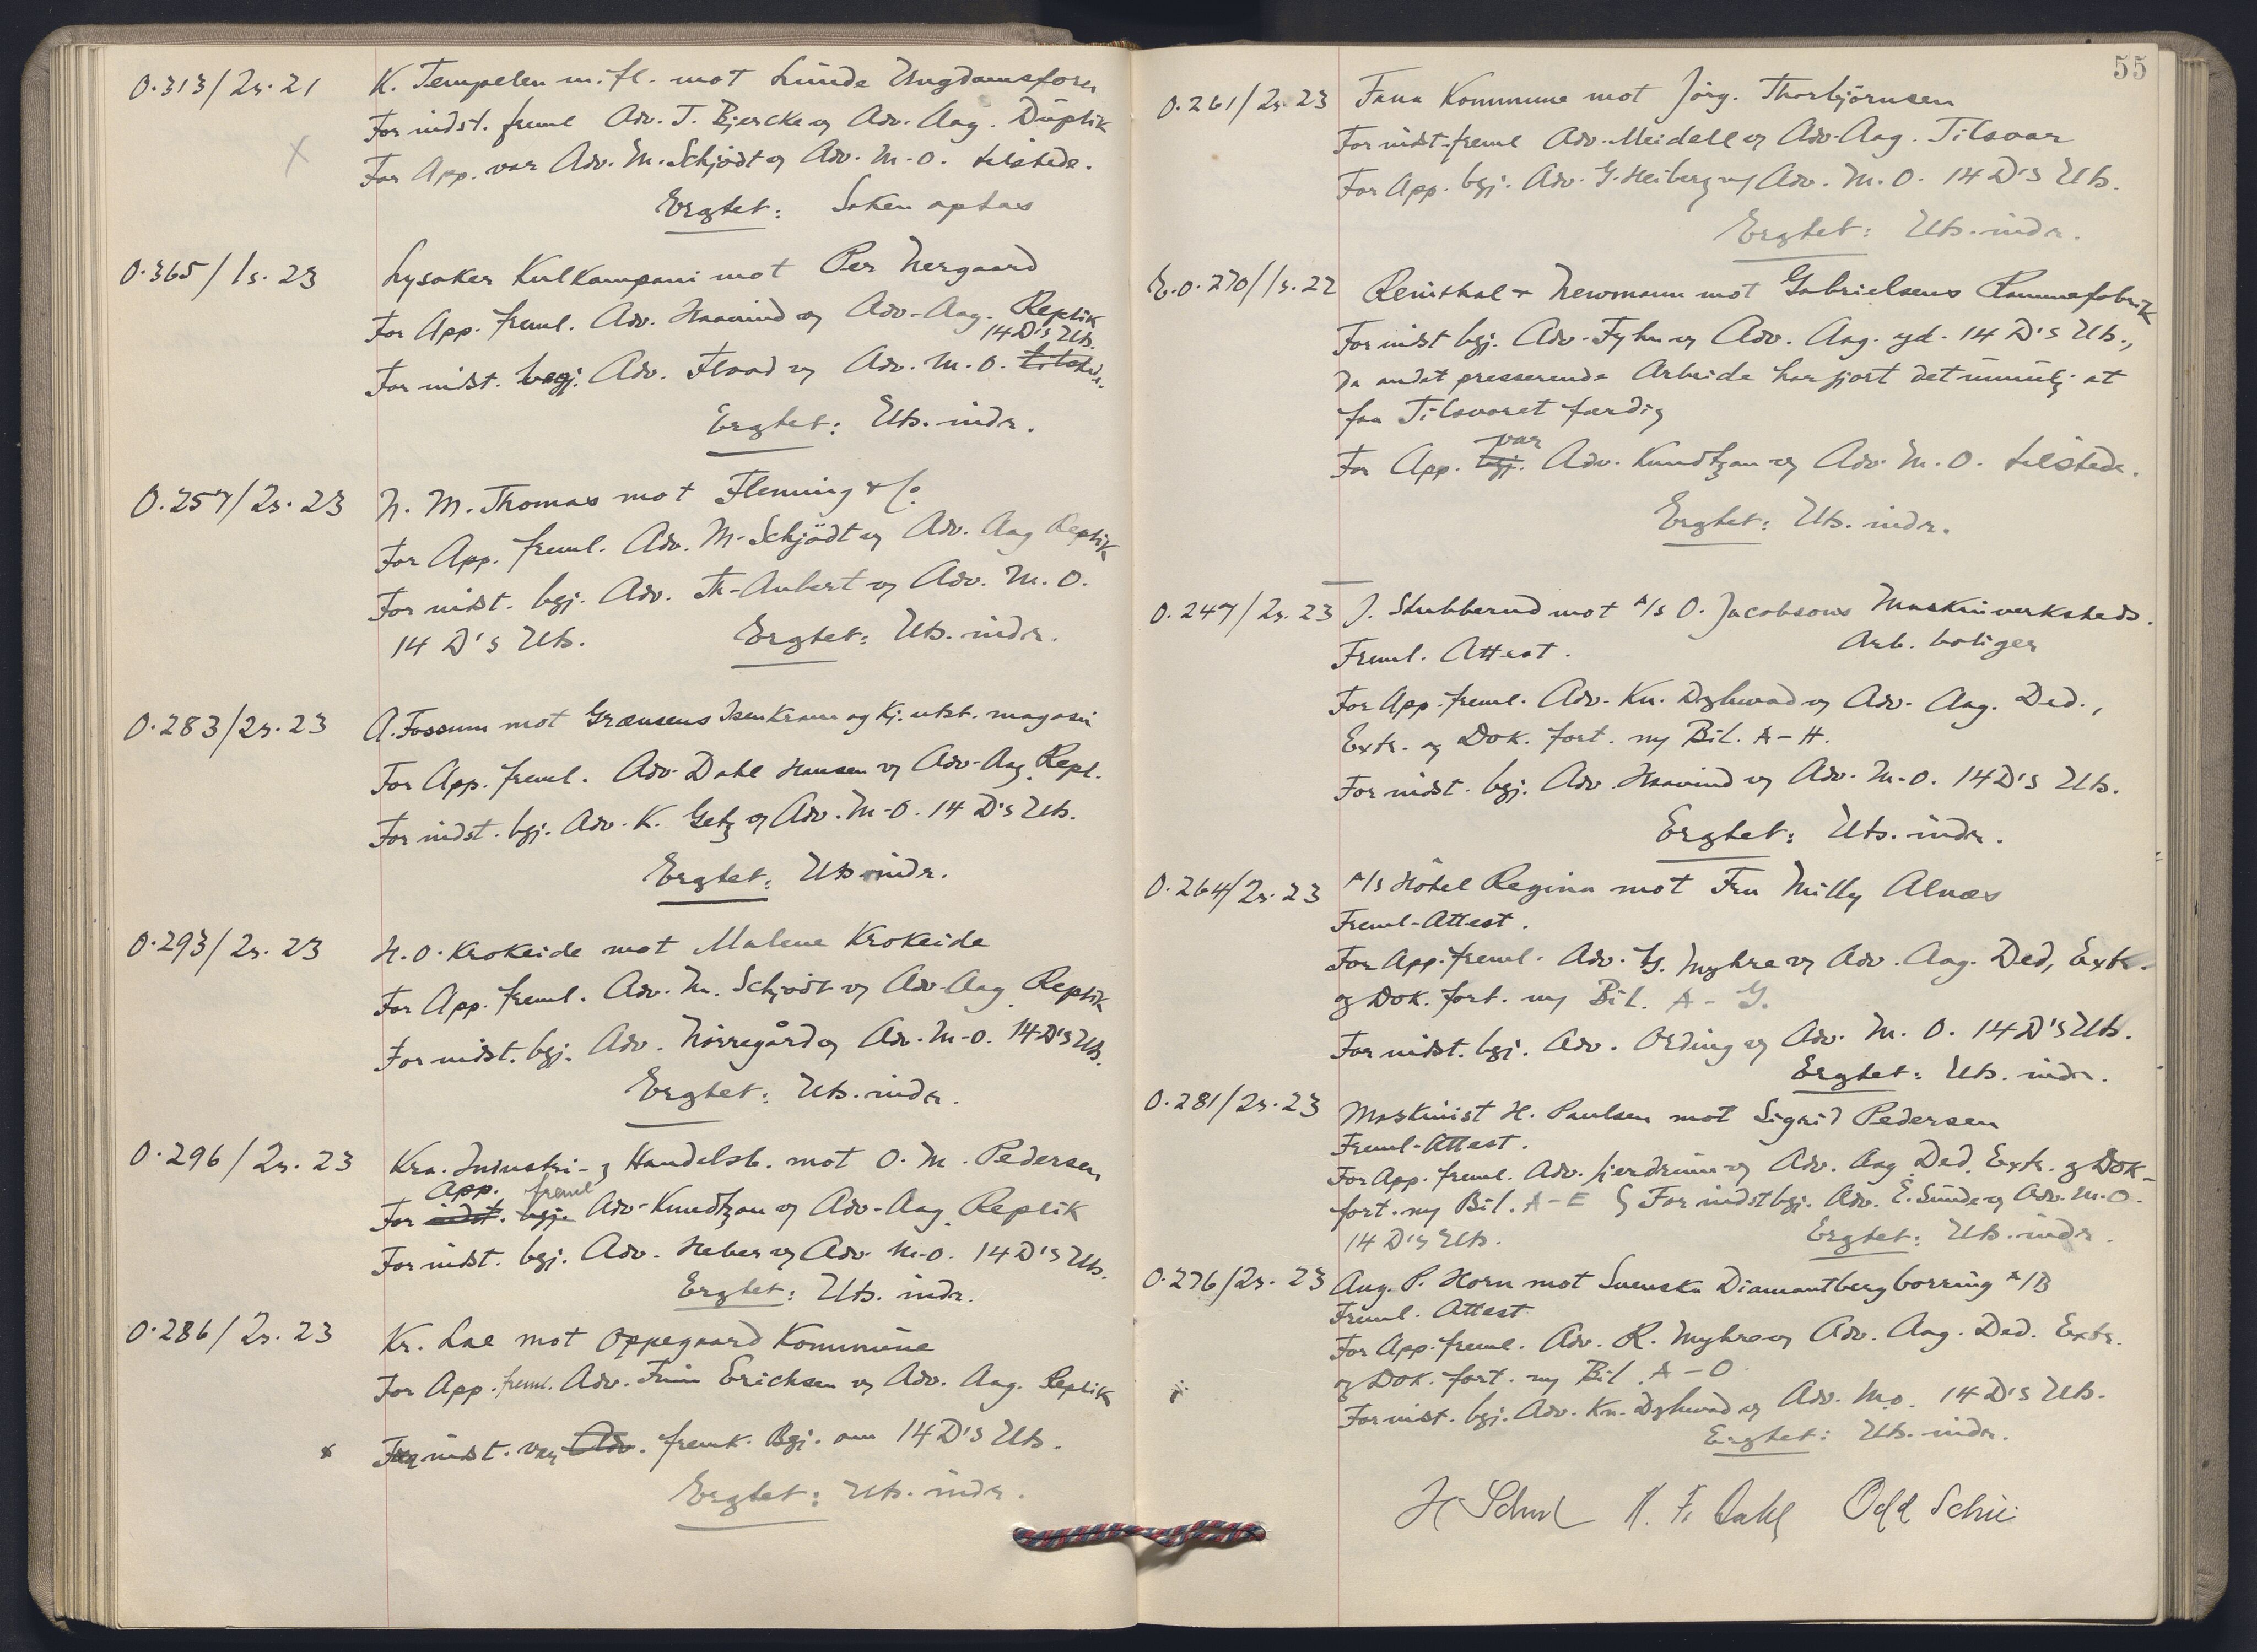 O. 313/2s. 21 K. Tempelen m. fl. mot Lunde Ungdomsforen
For indst. freml Adv. T. Bjercke og Adv. Aag. Duplik
For App. var Adv. M. Schjödt og Adv. M-O. tilstede.
Ergtet: Saken optas
O. 365/1s. 23 Lysaker Kulkompani mot Per Nergaard
For App. freml. Adv. Haavind og Adv-Aag. Replik
14 D's Uts.
For indst. begj. Adv. Flood og Adv. M.O. tilstede.
Ergtet: Uts. indr.
O. 257/2s. 23 N. M. Thomas mot Flenning & Co.
For App. freml. Adv. M. Schjödt og Adv. Aag Replik
For indst. bgj. Adv. Th-Aubert og Adv. M. O.
14 D's Uts. Ergtet: Uts. indr.
O. 283/2s. 23 A. Fossum mot Grænsens Isenkram og Kj. utst. magasin
For App. freml. Adv. Dahl Hansen og Adv-Aag. Repl.
For indst. bgj. Adv. K. Getz og Adv. M-O. 14 D's Uts.
Ergtet: Uts indr.
O. 293/2s. 23 H. O. Krokeide mot Malene Krokeide
For App. freml. Adv. M. Schjödt og Adv-Aag. Replik
For indst. bgj. Adv. Nörregård og Adv. M-O. 14 D's Uts.
Ergtet: Uts. indr.
O. 296/2s. 23 Kra. Industri- og Handelsb. mot O. M. Pedersen
App. freml
For indst. bgj. Adv-Knudtzon og Adv-Aag. Replik
For indst. bgj. Adv. Heber og Adv. M-O. 14 D's Uts.
Ergtet: Uts. indr.
O. 286/2s. 23 Kr. Lae mot Oppegaard Kommune
For App. freml. Adv. Finn Erichsen og Adv. Aag. Replik
x For indst. var Adv. fremk. Bgj. om 14 D's Uts.
Ergtet: Uts. indr.
55
O. 261/2s. 23 Fana Kommune mot Jörg. Thorbjörnsen
For indst. freml Adv. Meidell og Adv-Aag. Tilsvar
For App. bgj. Adv. G. Heiberg og Adv. M. O. 14 D's Uts.
Ergtet: Uts. indr.
O. 270/1s. 22 Reinthal & Newmann mot Gabrielsens Rammefabrik
For indst bgj. Adv. Fyhn og Adv. Aag. yd. 14 D's Uts.,
da andet presserende Arbeide har gjort det umulig at
faa Tilsvaret færdig
var
For App. bgj. Adv. Knudtzon og Adv. M. O. tilstede.
Ergtet: Uts. indr.
O. 247/2s. 23 J. Stubberud mot A/S O. Jacobsons Maskinverksteds.
Arb. boliger
Freml. Attest.
For App. freml. Adv. Kn. Dyhwad og Adv. Aag. Ded.,
Extr. og Dok. fort. m/ Bil. A-H.
For indst. bgj. Adv. Haavind og Adv. M-O. 14 D's Uts.
Ergtet: Uts. indr.
O. 264/2s. 23 A/S Hôtel Regina mot Fru Milly Alnæs
Freml. Attest.
For App. freml. Adv. Myhre og Adv. Aag. Ded, Extr.
og Dok. fort. m/ Bil. A-G.
For indst. bgj. Adv. Ording og Adv. M. O. 14 D's Uts.
Ergtet: Uts. indr.
O. 281/2s. 23 Maskinist H. Paulsen mot Sigrid Pedersen
Freml. Attest.
For App. freml. Adv. Hjerdrum og Adv. Aag. Ded. Extr. og Dok-
fort. m/ Bil. A-E For indst bgj. Adv. E. Sunde og Adv. M. O.
14 D's Uts. Ergtet: Uts. indr.
O. 276/2s. 23 Aug. P. Horn mot Svenska Diamantbergborring A/B
Freml. Attest
For App. freml. Adv. R. Myhre og Adv. Aag. Ded. Extr.
og Dok. fort. m/ Bil. A-O
For indst. bgj. Adv. Kn. Dyhwad og Adv. M.O. 14 D's Uts.
Ergtet: Uts. indr.
F. Dahl Odd